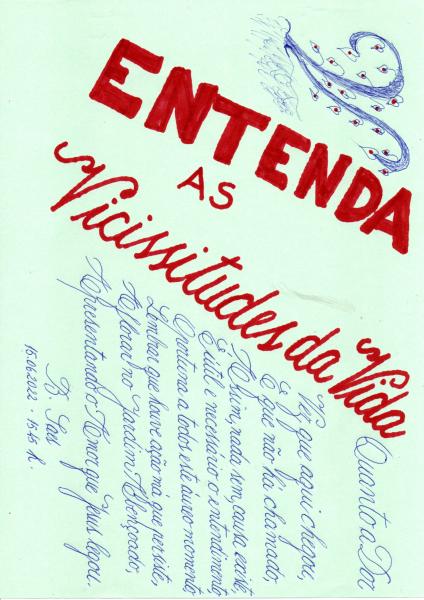 ENTENDA
AS
Vicissitudes da Vida
Quanto a Dor
que aqui chegou,
E que não há chamado,
Assim, nada sem causa existe,
É útil e necessário o entendimento,
Oportuna a todos este áureo momento,
Lembrar que houve ação má que persiste,
Aflorar no Jardim Abençoado,
Apresentando o Amor que Jesus legou.
15.06.2022 - 15:45 h.